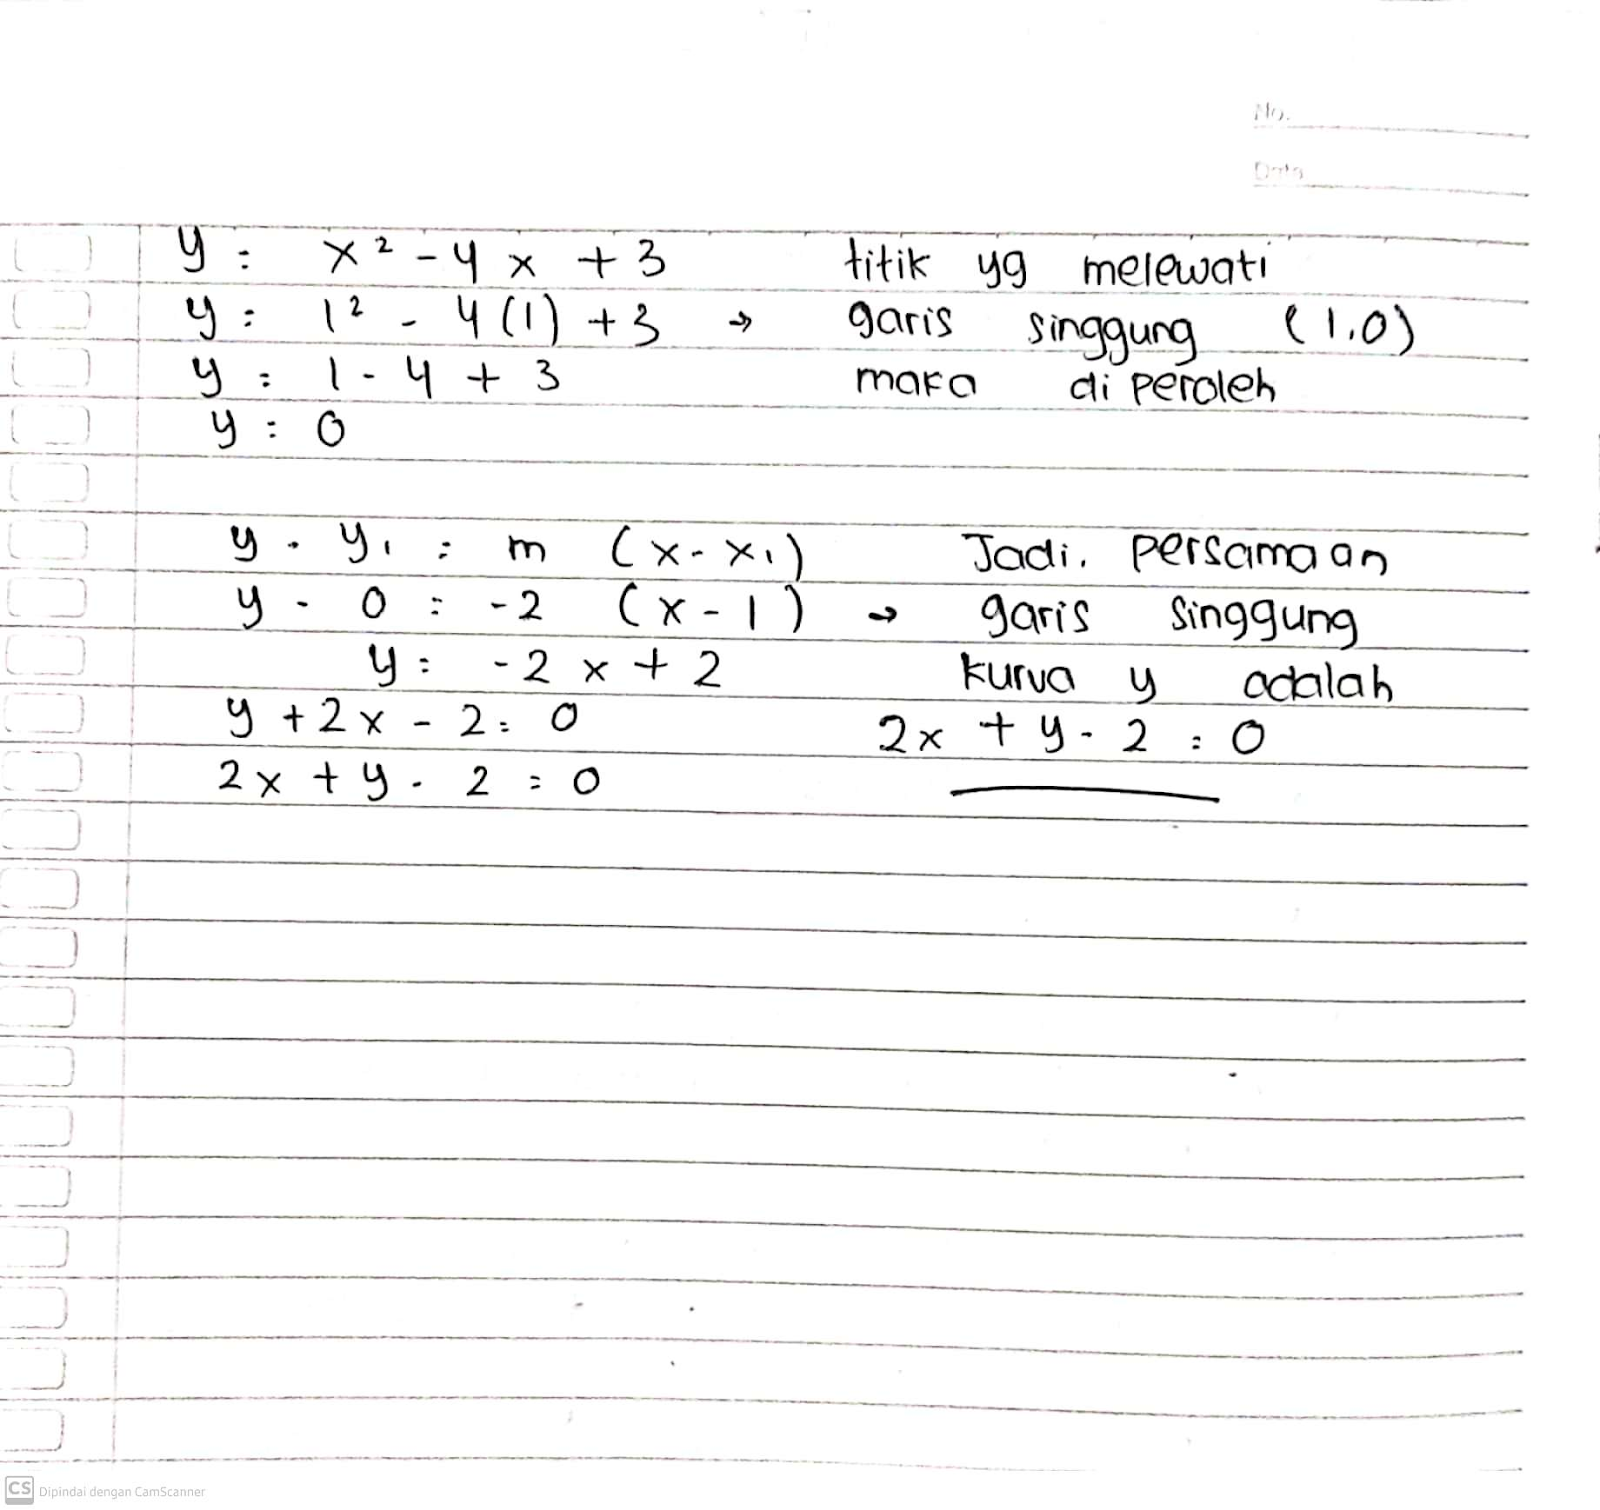 No.
Date
y = x² - 4x + 3 titik yg melewati
y = 1² - 4(1) + 3 → garis singgung (1,0)
y = 1 - 4 + 3 maka di peroleh
y = 0
y - y₁ = m (x - x₁) Jadi, persamaan
y - 0 = -2 (x - 1) → garis singgung
y = -2x + 2 kurva y adalah
y + 2x - 2 = 0 2x + y - 2 = 0
2x + y - 2 = 0
CS Dipindai dengan CamScanner